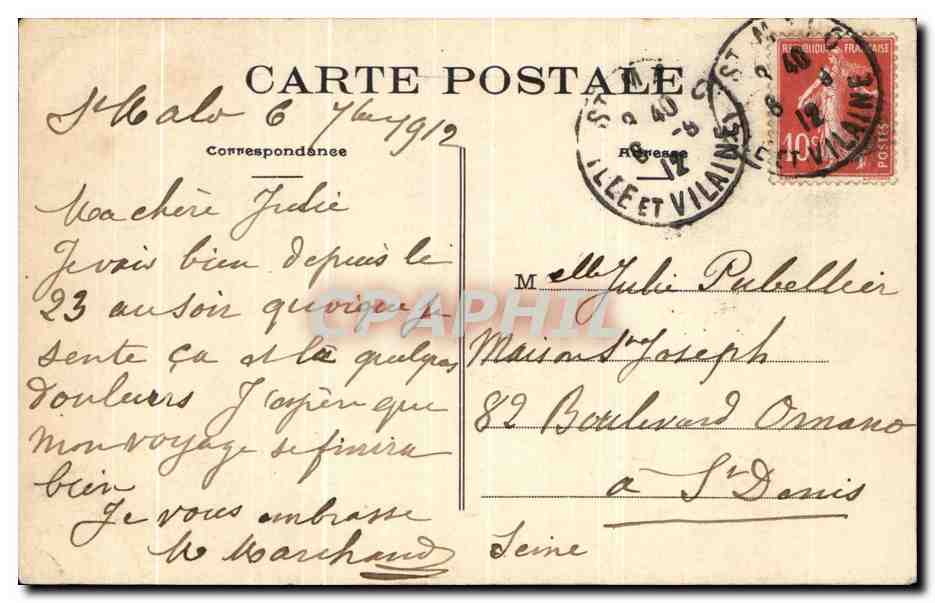 CARTE POSTALE
St Malo 6 7bre 1912
Correspondance
Ma chère Julie
Je vais bien depuis le
23 au soir quoique je
sente ça et là quelques
douleurs J'espère que
mon voyage se finira
bien
Je vous embrasse
M Marchand
Adresse
Melle Julie Pubellier
Maison St Joseph
82 Boulevard Ornano
à St Denis
Seine
ST MALO
8 40
6 - 9
12
ILLE ET VILAINE
ST MALO
8 40
6 9
12
ILLE ET VILAINE
REPUBLIQUE FRANÇAISE
10c
POSTES
CPAPHIL